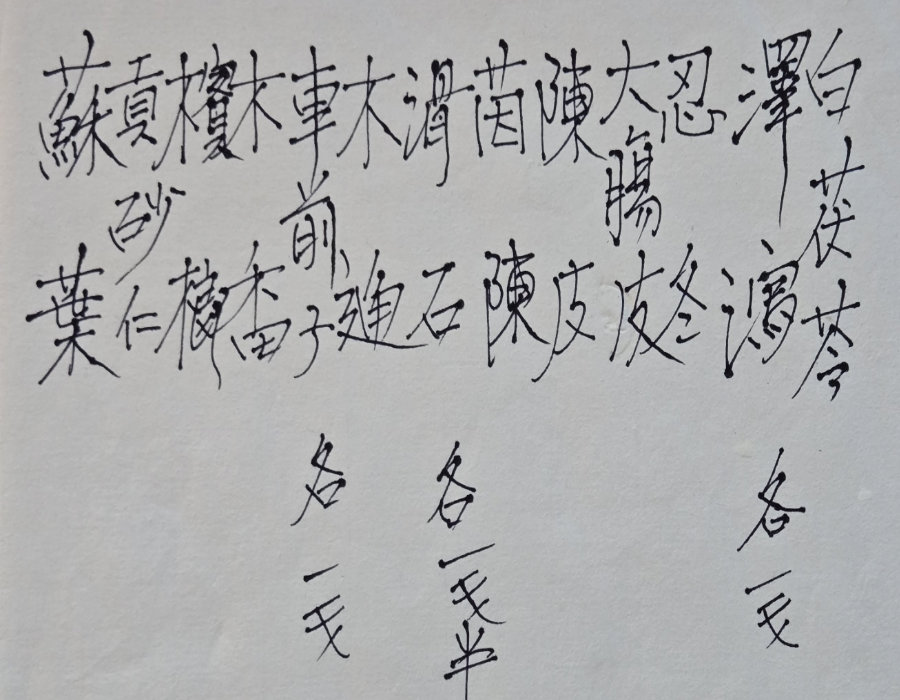 白茯苓
澤瀉 各一戋
忍冬
大腸皮
陳皮
茵陳
滑石 各一戋半
木通
車前子 各一戋
木香
檳榔
貢砂仁
蘇葉